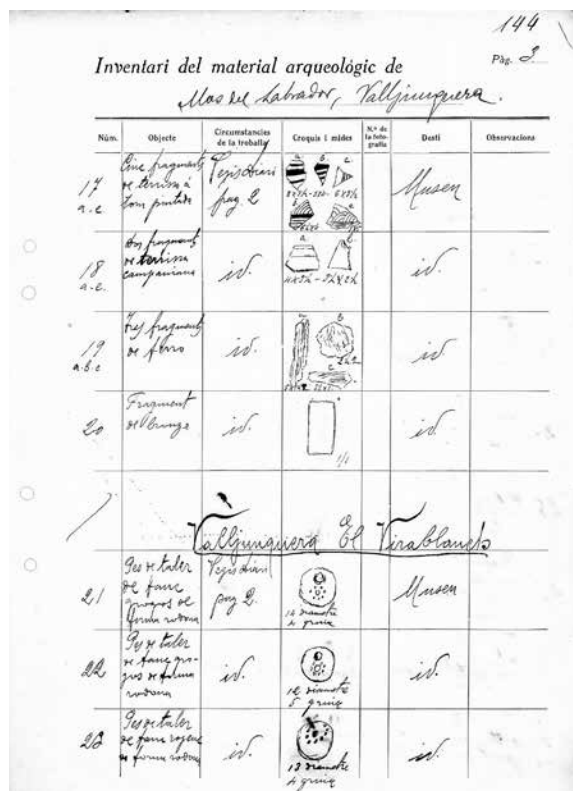 144
Inventari del material arqueològic de
Pàg. 3
Mas del Labrador, Valljunquera.
Núm.
Objecte
Circumstancies
de la troballa
Croquis i mides
N.º de
la foto-
grafia
Destí
Observacions
17
a. e.
Cinc fragments
de terrissa a
torn pintada
Vegis diari
pag. 2
a. b. c.
Museu
18
a. e.
Dos fragments
de terrissa
campaniana
id.
a.
id.
19
a. b. c
Tres fragments
de ferro
id.
a. b.
c
id.
20
Fragment
de bronze
id.
1/1
id.
Valljunquera El Virablanch
21
Pes de taler
de fang
grogos de
forma rodona
Vegis diari
pag 2.
12 diametre
4 gruix
Museu
22
Pes de taler
de fang gro-
gos de forma
rodona
id.
12 diametre
5 gruix
id.
23
Pes de taler
de fang rogenc
de forma rodona
id.
13 diametre
4 gruix
id.